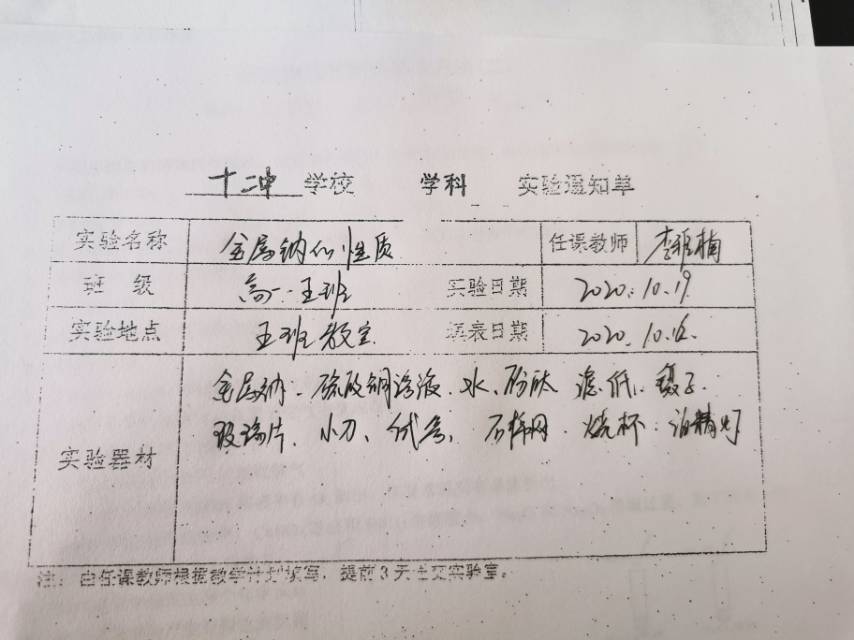 十二中 学校 学科 实验通知单
实验名称 金属钠的性质 任课教师 李雅楠
班 级 高一.王班 实验日期 2020.10.19
实验地点 王班教室 填表日期 2020.10.16
金属钠.硫酸铜溶液.水.酚酞 滤纸.镊子.
玻璃片、小刀、 石棉网.烧杯.酒精灯
实验器材
注：由任课教师根据教学计划填写，提前3天送交实验室。